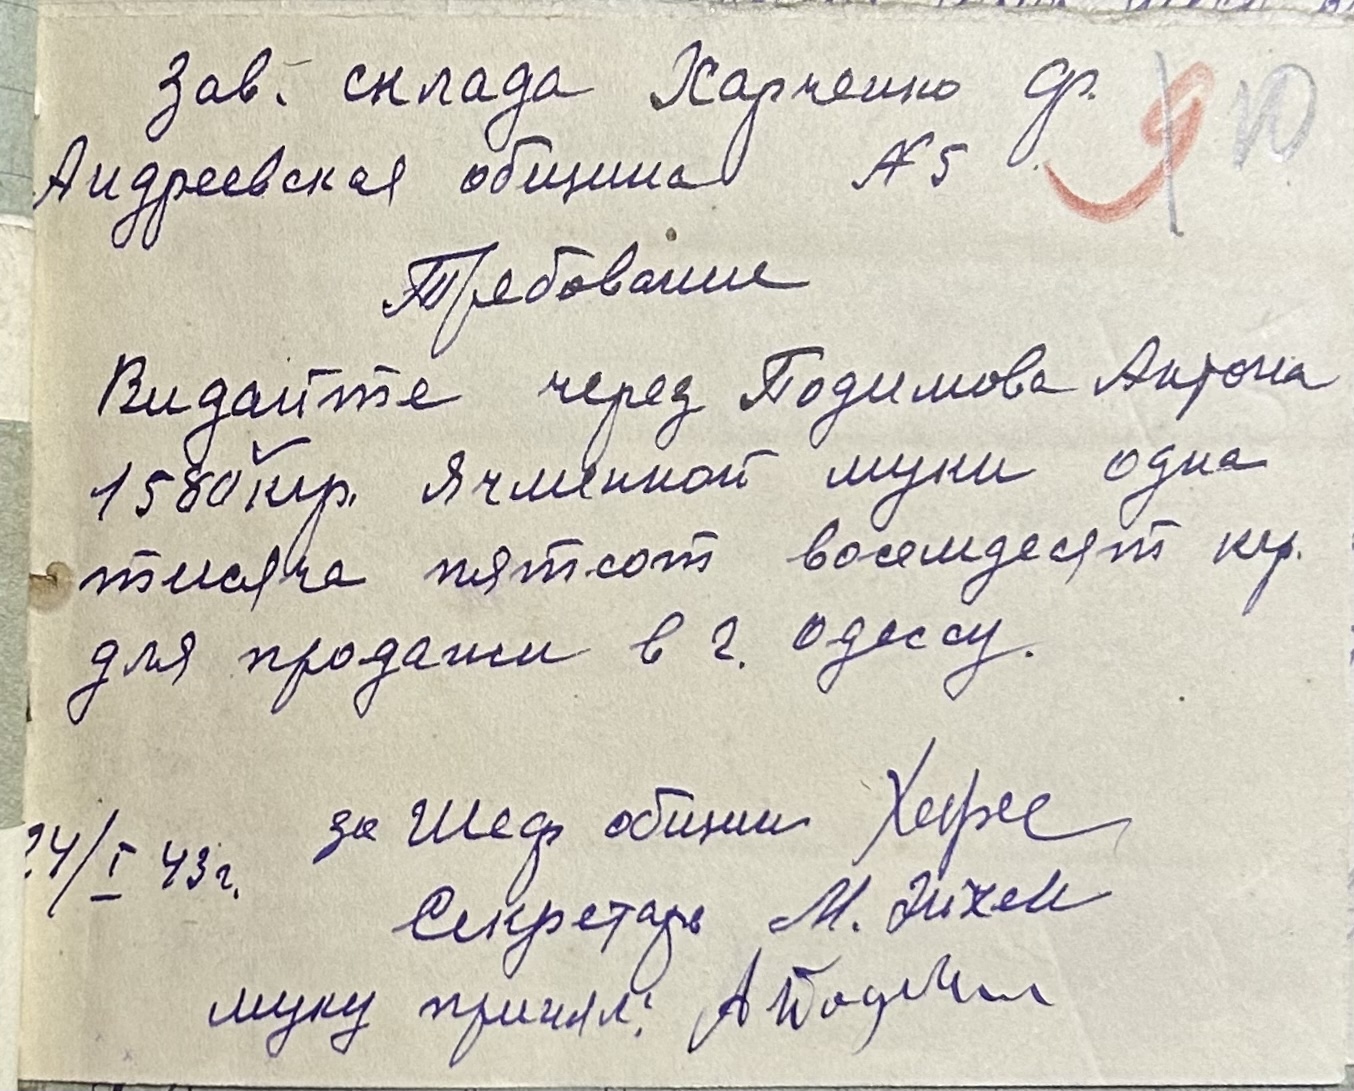 Зав. склада Харченко Ф.
9 10
Андреевская община №5
Требование
Видайте через Подимова Антона
1580 кгр. ячменной муки одна
тисяча пятсот восемдесят кгр.
для продажи в г. Одессу.
за Шеф общини
24/I 43г.
Секретарь М.
муку принял: